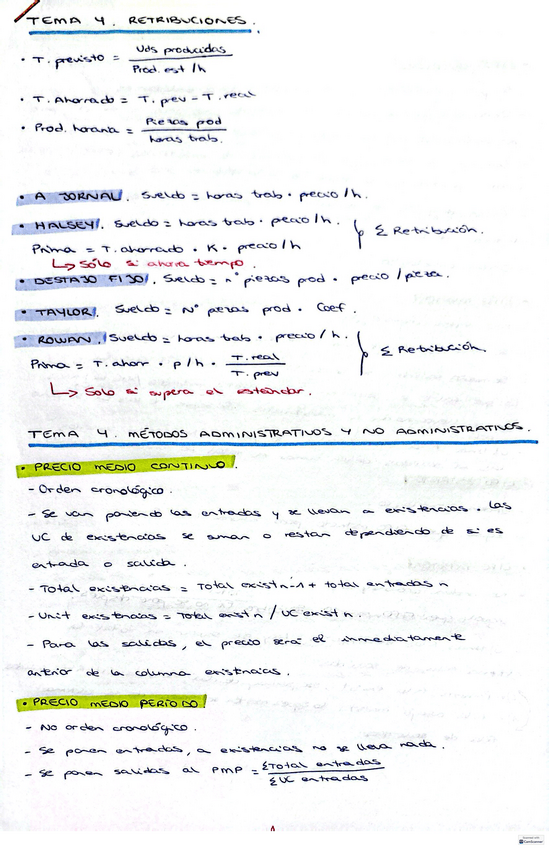 TEMA 4. RETRIBUCIONES.
• T. previsto = Uds producidas / Prod. est /h
• T. Ahorrado = T. prev - T. real
• Prod. horaria = Piezas prod / horas trab.
• A JORNAL. Sueldo = horas trab • precio/h.
• HALSEY. Sueldo = horas trab • precio/h.
Prima = T. ahorrado • K • precio/h
Σ Retribución.
↳ Sólo si ahorra tiempo.
• DESTAJO FIJO. Sueldo = nº piezas prod • precio/pieza.
• TAYLOR. Sueldo = Nº piezas prod • Coef.
• ROWAN. Sueldo = horas trab • precio/h.
Prima = T. ahorr • p/h • T. real / T. prev
Σ Retribución.
↳ Solo si supera el estándar.
TEMA 4. MÉTODOS ADMINISTRATIVOS Y NO ADMINISTRATIVOS.
• PRECIO MEDIO CONTINUO.
- Orden cronológico.
- Se van poniendo las entradas y se llevan a existencias. Las
UC de existencias se suman o restan dependiendo de si es
entrada o salida.
- Total existencias = Total exist n-1 + total entradas n
- Unit existencias = Total exist n / UC exist n.
- Para las salidas, el precio será el inmediatamente
anterior de la columna existencias.
• PRECIO MEDIO PERÍODO.
- No orden cronológico.
- Se ponen entradas, a existencias no se lleva nada.
- Se ponen salidas al PMP = ΣTotal entradas / ΣUC entradas
CamScanner